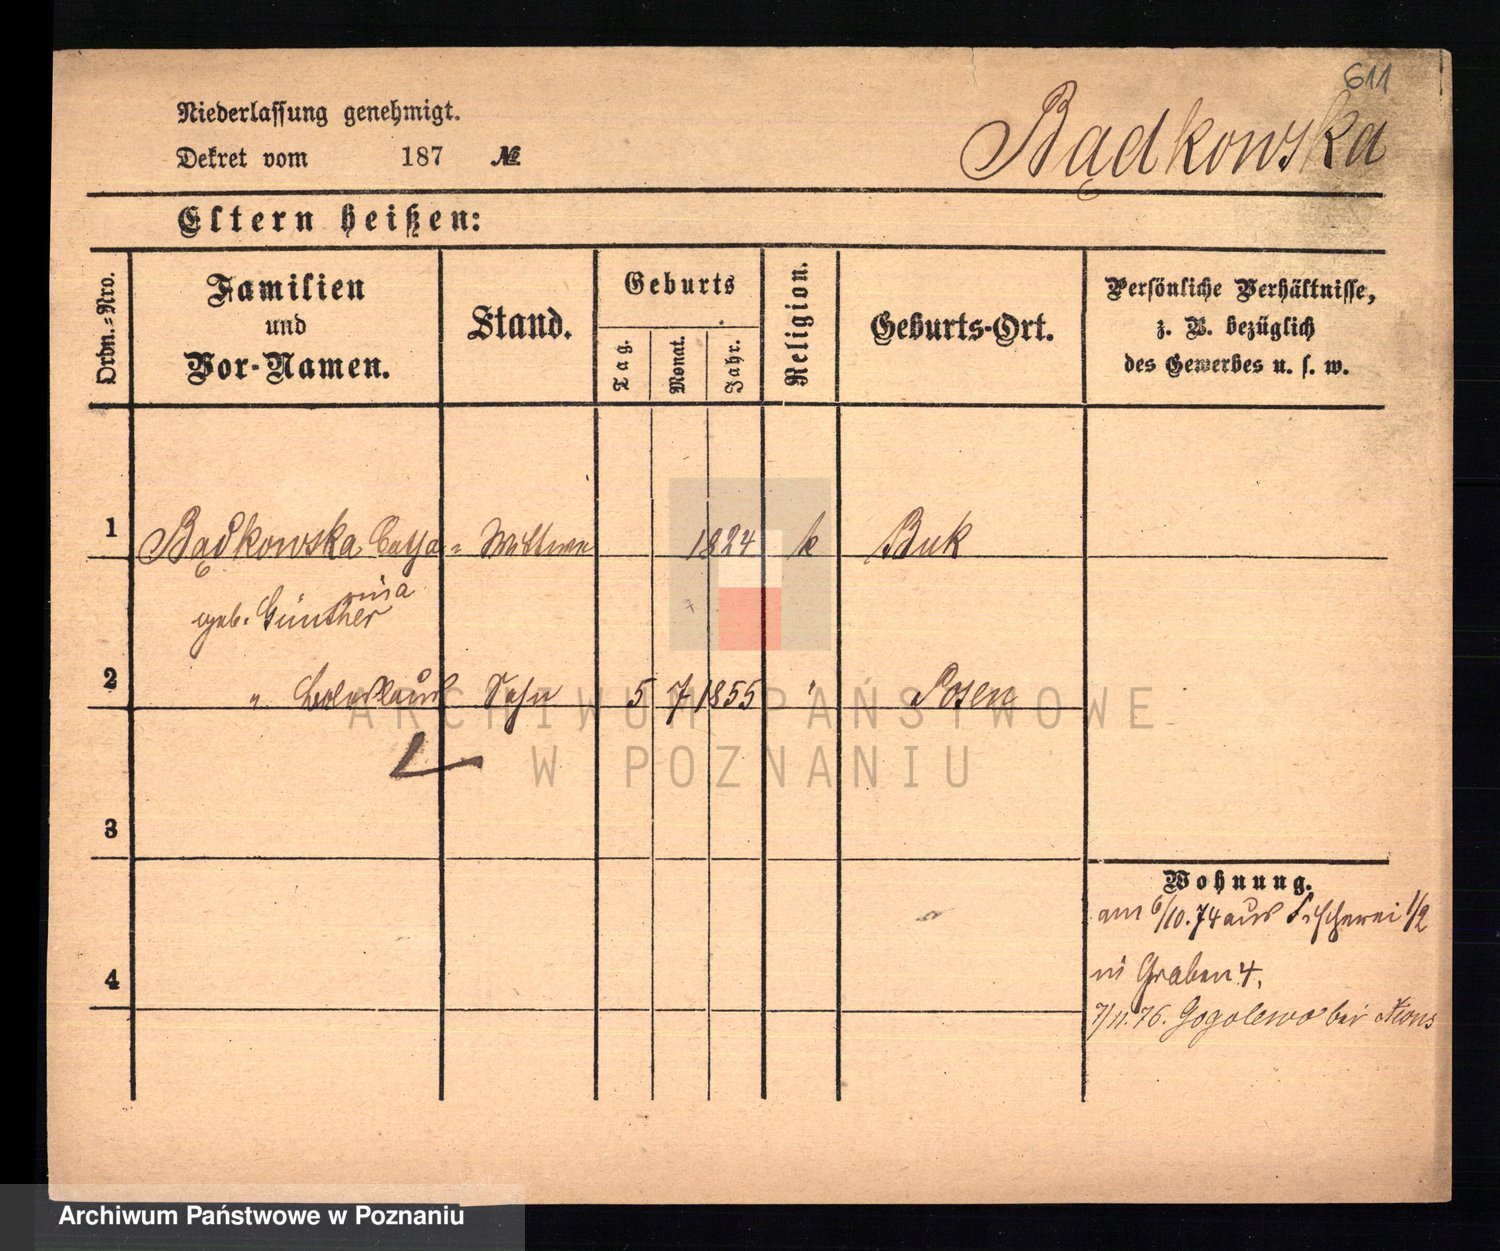 611
Niederlassung genehmigt.
Bądkowska
Dekret vom 187 №
Eltern heißen:
Ordn.=Nro.
Familien
und
Vor-Namen.
Stand.
Geburts
Tag.
Monat.
Jahr.
Religion.
Geburts-Ort.
Persönliche Verhältnisse,
z. B. bezüglich
des Gewerbes u. s. w.
1 Bądkowska Catha= Wittwe 1824 k Buk
rina
geb. Günther
2 " Boleslaus Sohn 5 7 1855 " Posen
3
Wohnung.
am 6/10. 74 aus Fischerei 1/2
4 in Graben 4.
7/11. 76. Gogolewo bei Xions
ARCHIWUM PAŃSTWOWE
W POZNANIU
Archiwum Państwowe w Poznaniu